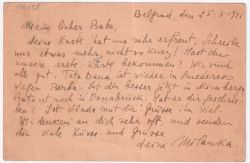 Belgrad, den 25.X.191
Mein lieber Bata,
deine Karte hat uns sehr erfreut. Schreibe
uns etwas mehr, nicht so kurz! Hast du
unsere erste Karte bekommen? Wir sind
alle gut. Tata Dama ist wieder in
jetzt in Nürnberg
ist noch in Osnabrück. Hat er dir geschrie-
ben? Grüsse von ihm.
Wir denken an dich sehr oft und senden
dir viele Küsse und Grüsse
deine Milanka.